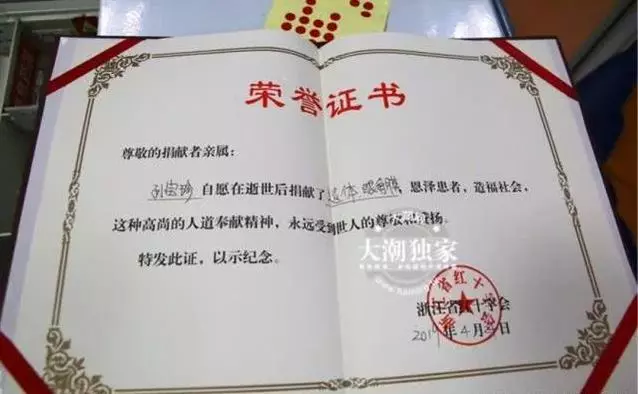 荣誉证书
尊敬的捐献者亲属：
自愿在逝世后捐献了遗体眼角膜 恩泽患者，造福社会，
这种高尚的人道奉献精神，永远受到世人的尊敬和赞扬。
特发此证，以示纪念。
大潮独家
浙江省红十字会
年4月 日